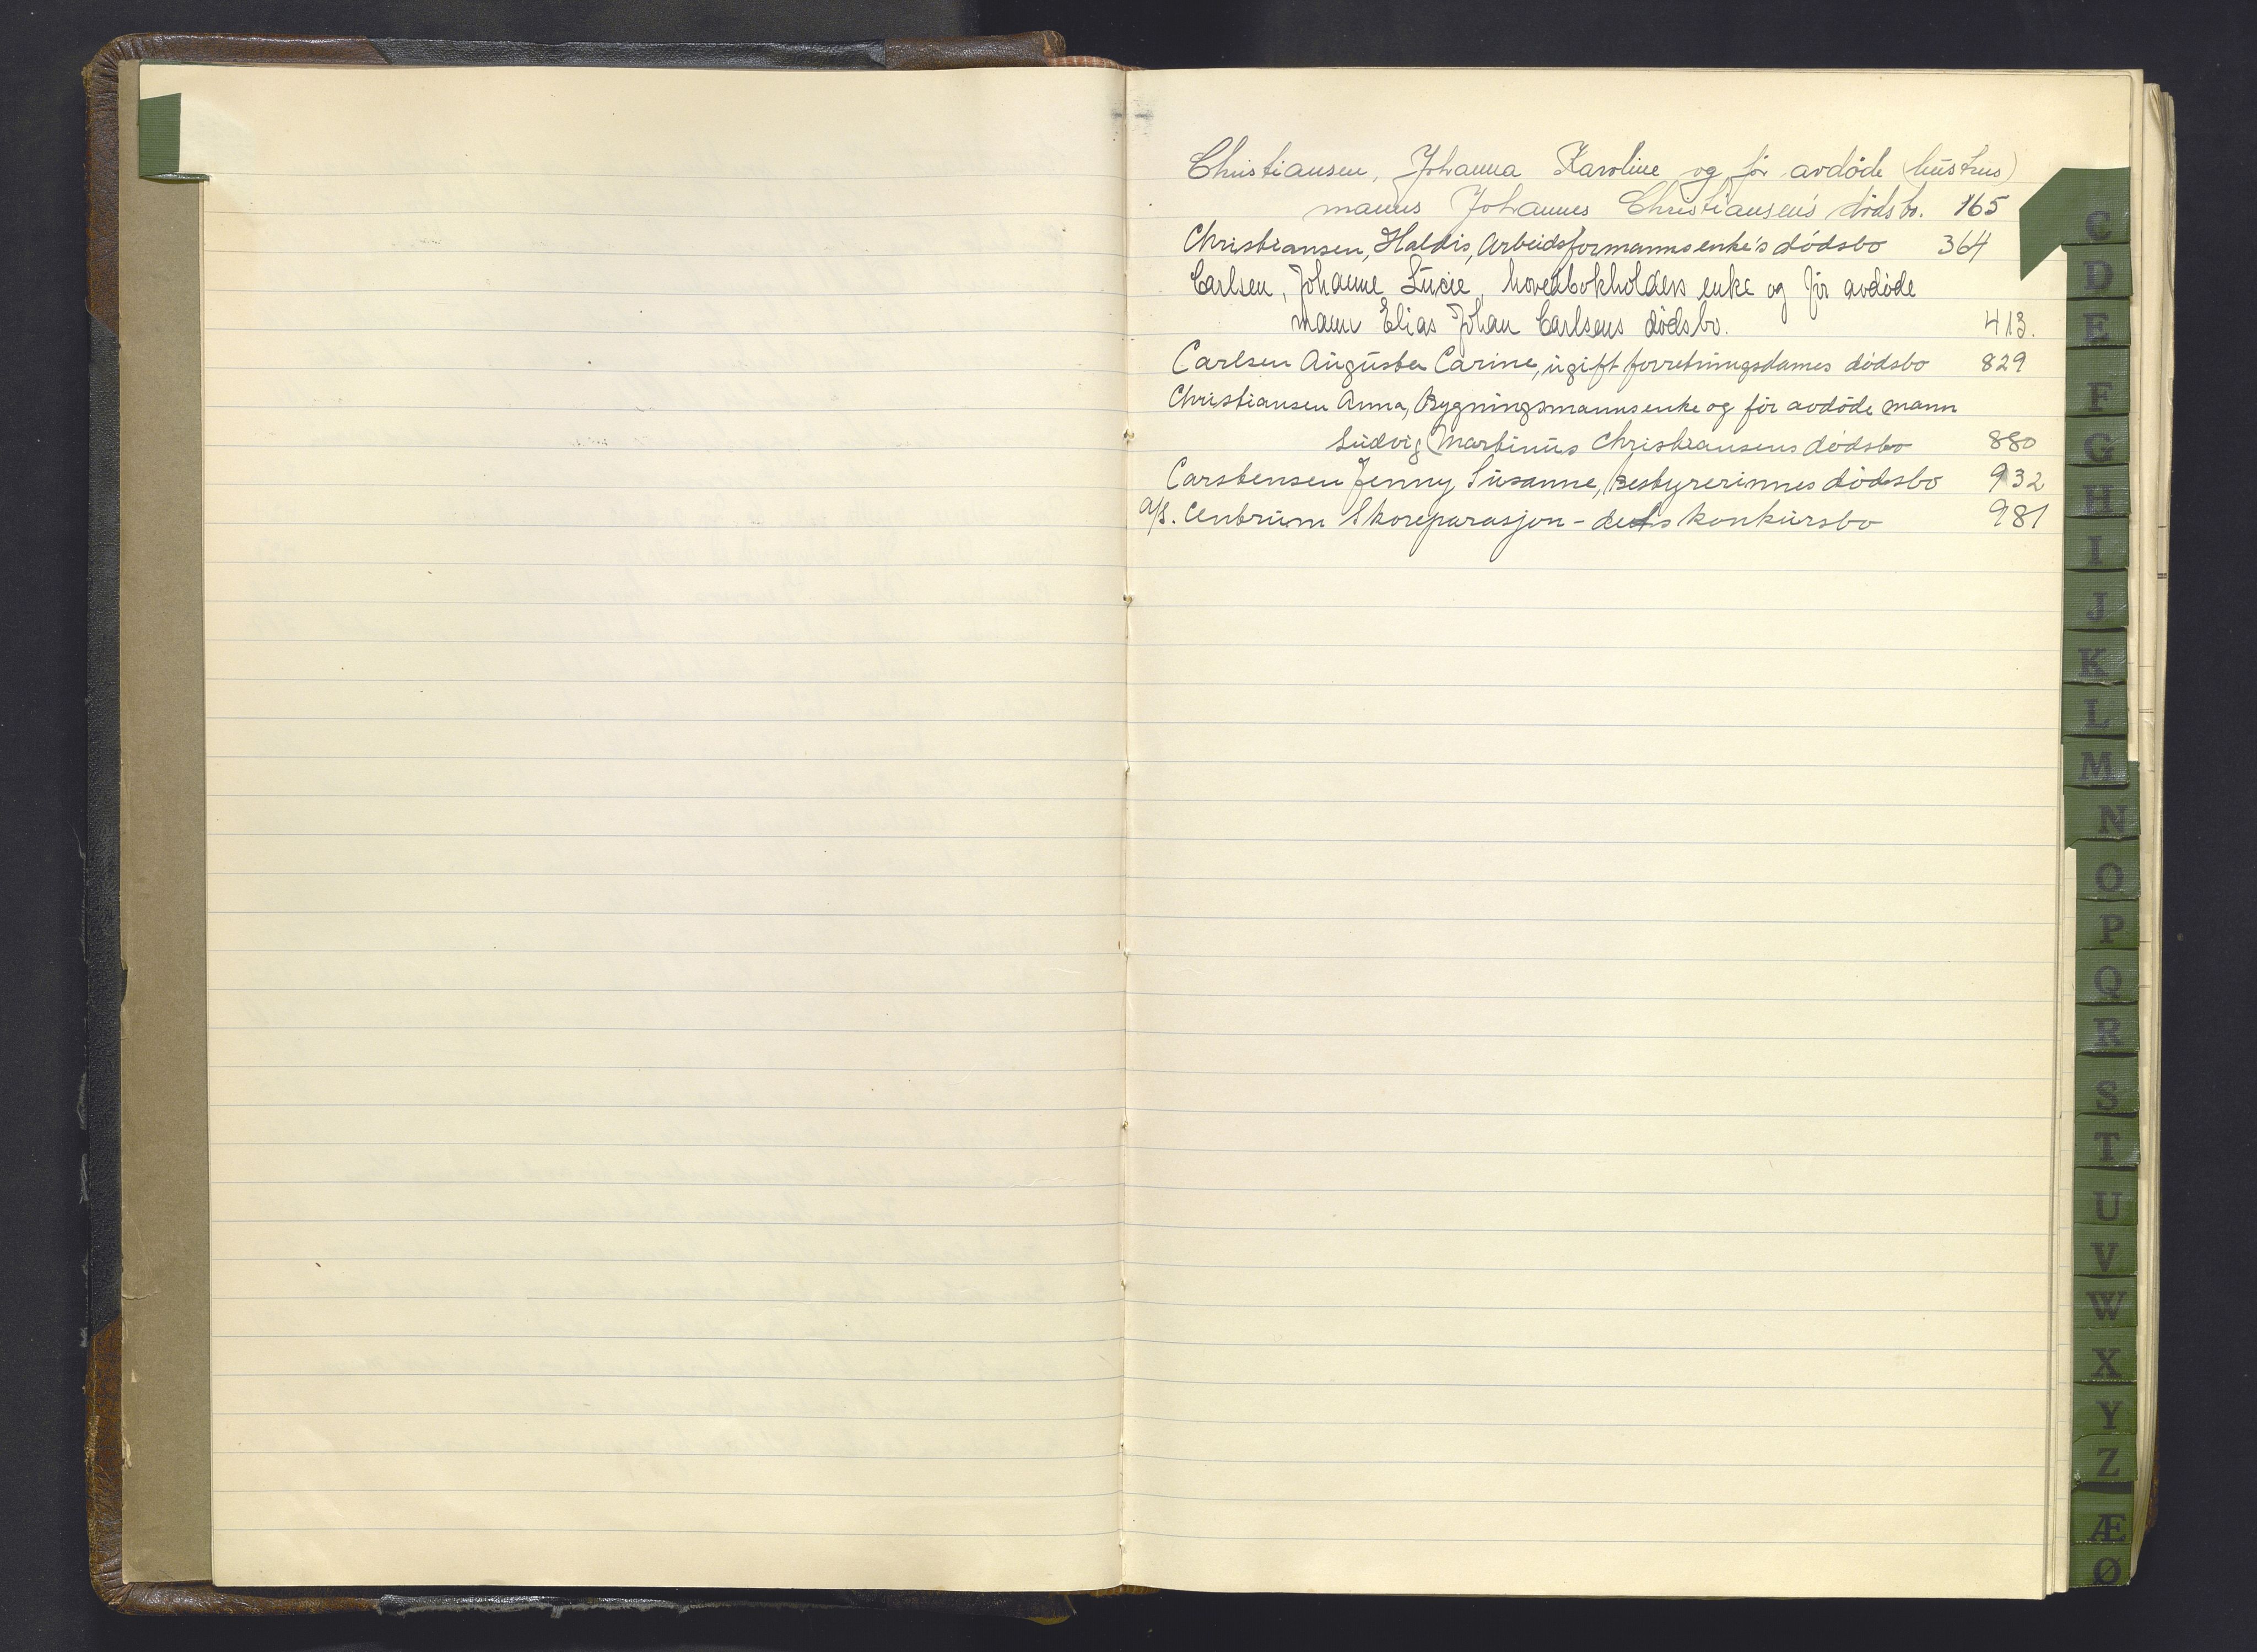 Christiansen, Johanna Karoline og før avdøde (hustrus)
manns Johannes Christiansen's dødsbo. 165
Christiansen, Haldis, Arbeidsformannsenke's dødsbo 364
Carlsen, Johanne Lucie, hovedbokholders enke og før avdøde
mann Elias Johan Carlsens dødsbo. 413.
Carlsen Augusta Carine, ugift forretningsdames dødsbo 829
Christiansen Anna, Bygningsmannsenke og før avdøde mann
Ludvig Martinius Christiansens dødsbo 880
Carstensen Jenny Susanne, Bestyrerinnes dødsbo 932
A/S. Centrum Skoreparasjon - dets konkursbo 981
C
D
E
F
G
H
I
J
K
L
M
N
O
P
Q
R
S
T
U
V
W
X
Y
Z
Æ
Ø